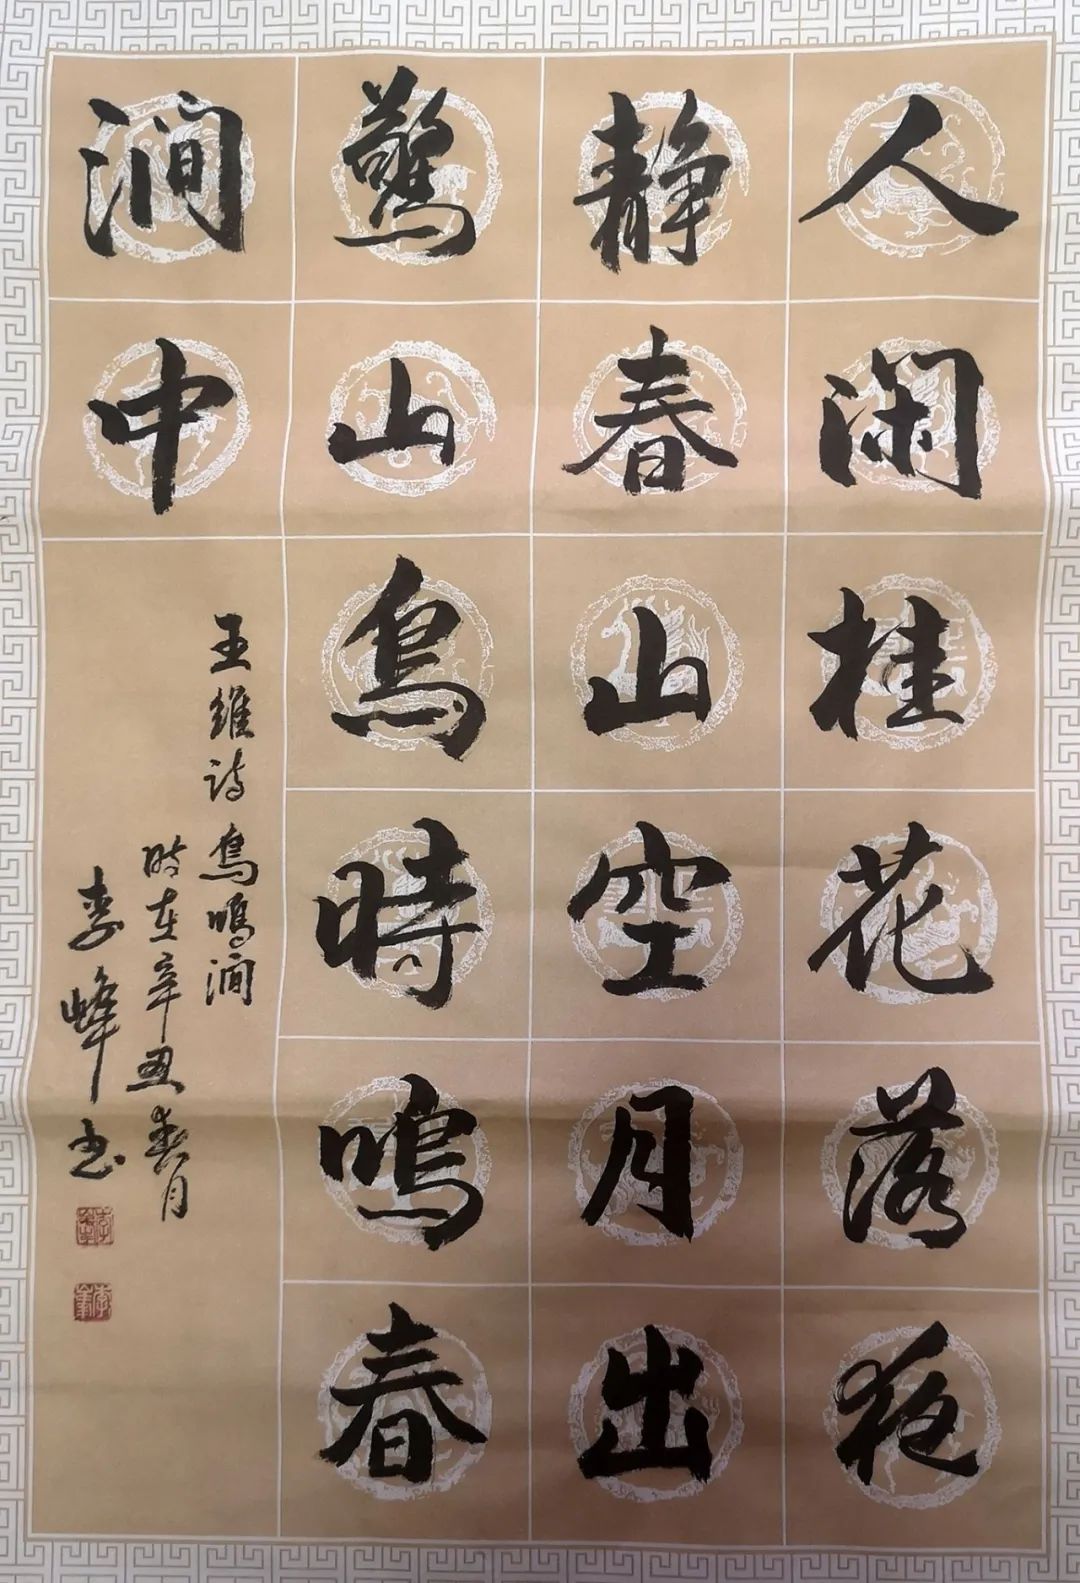 人闲桂花落夜
静春山空月出
驚山鳥時鳴春
涧中
王維诗鳥鳴涧
时在辛丑春月
李峰书